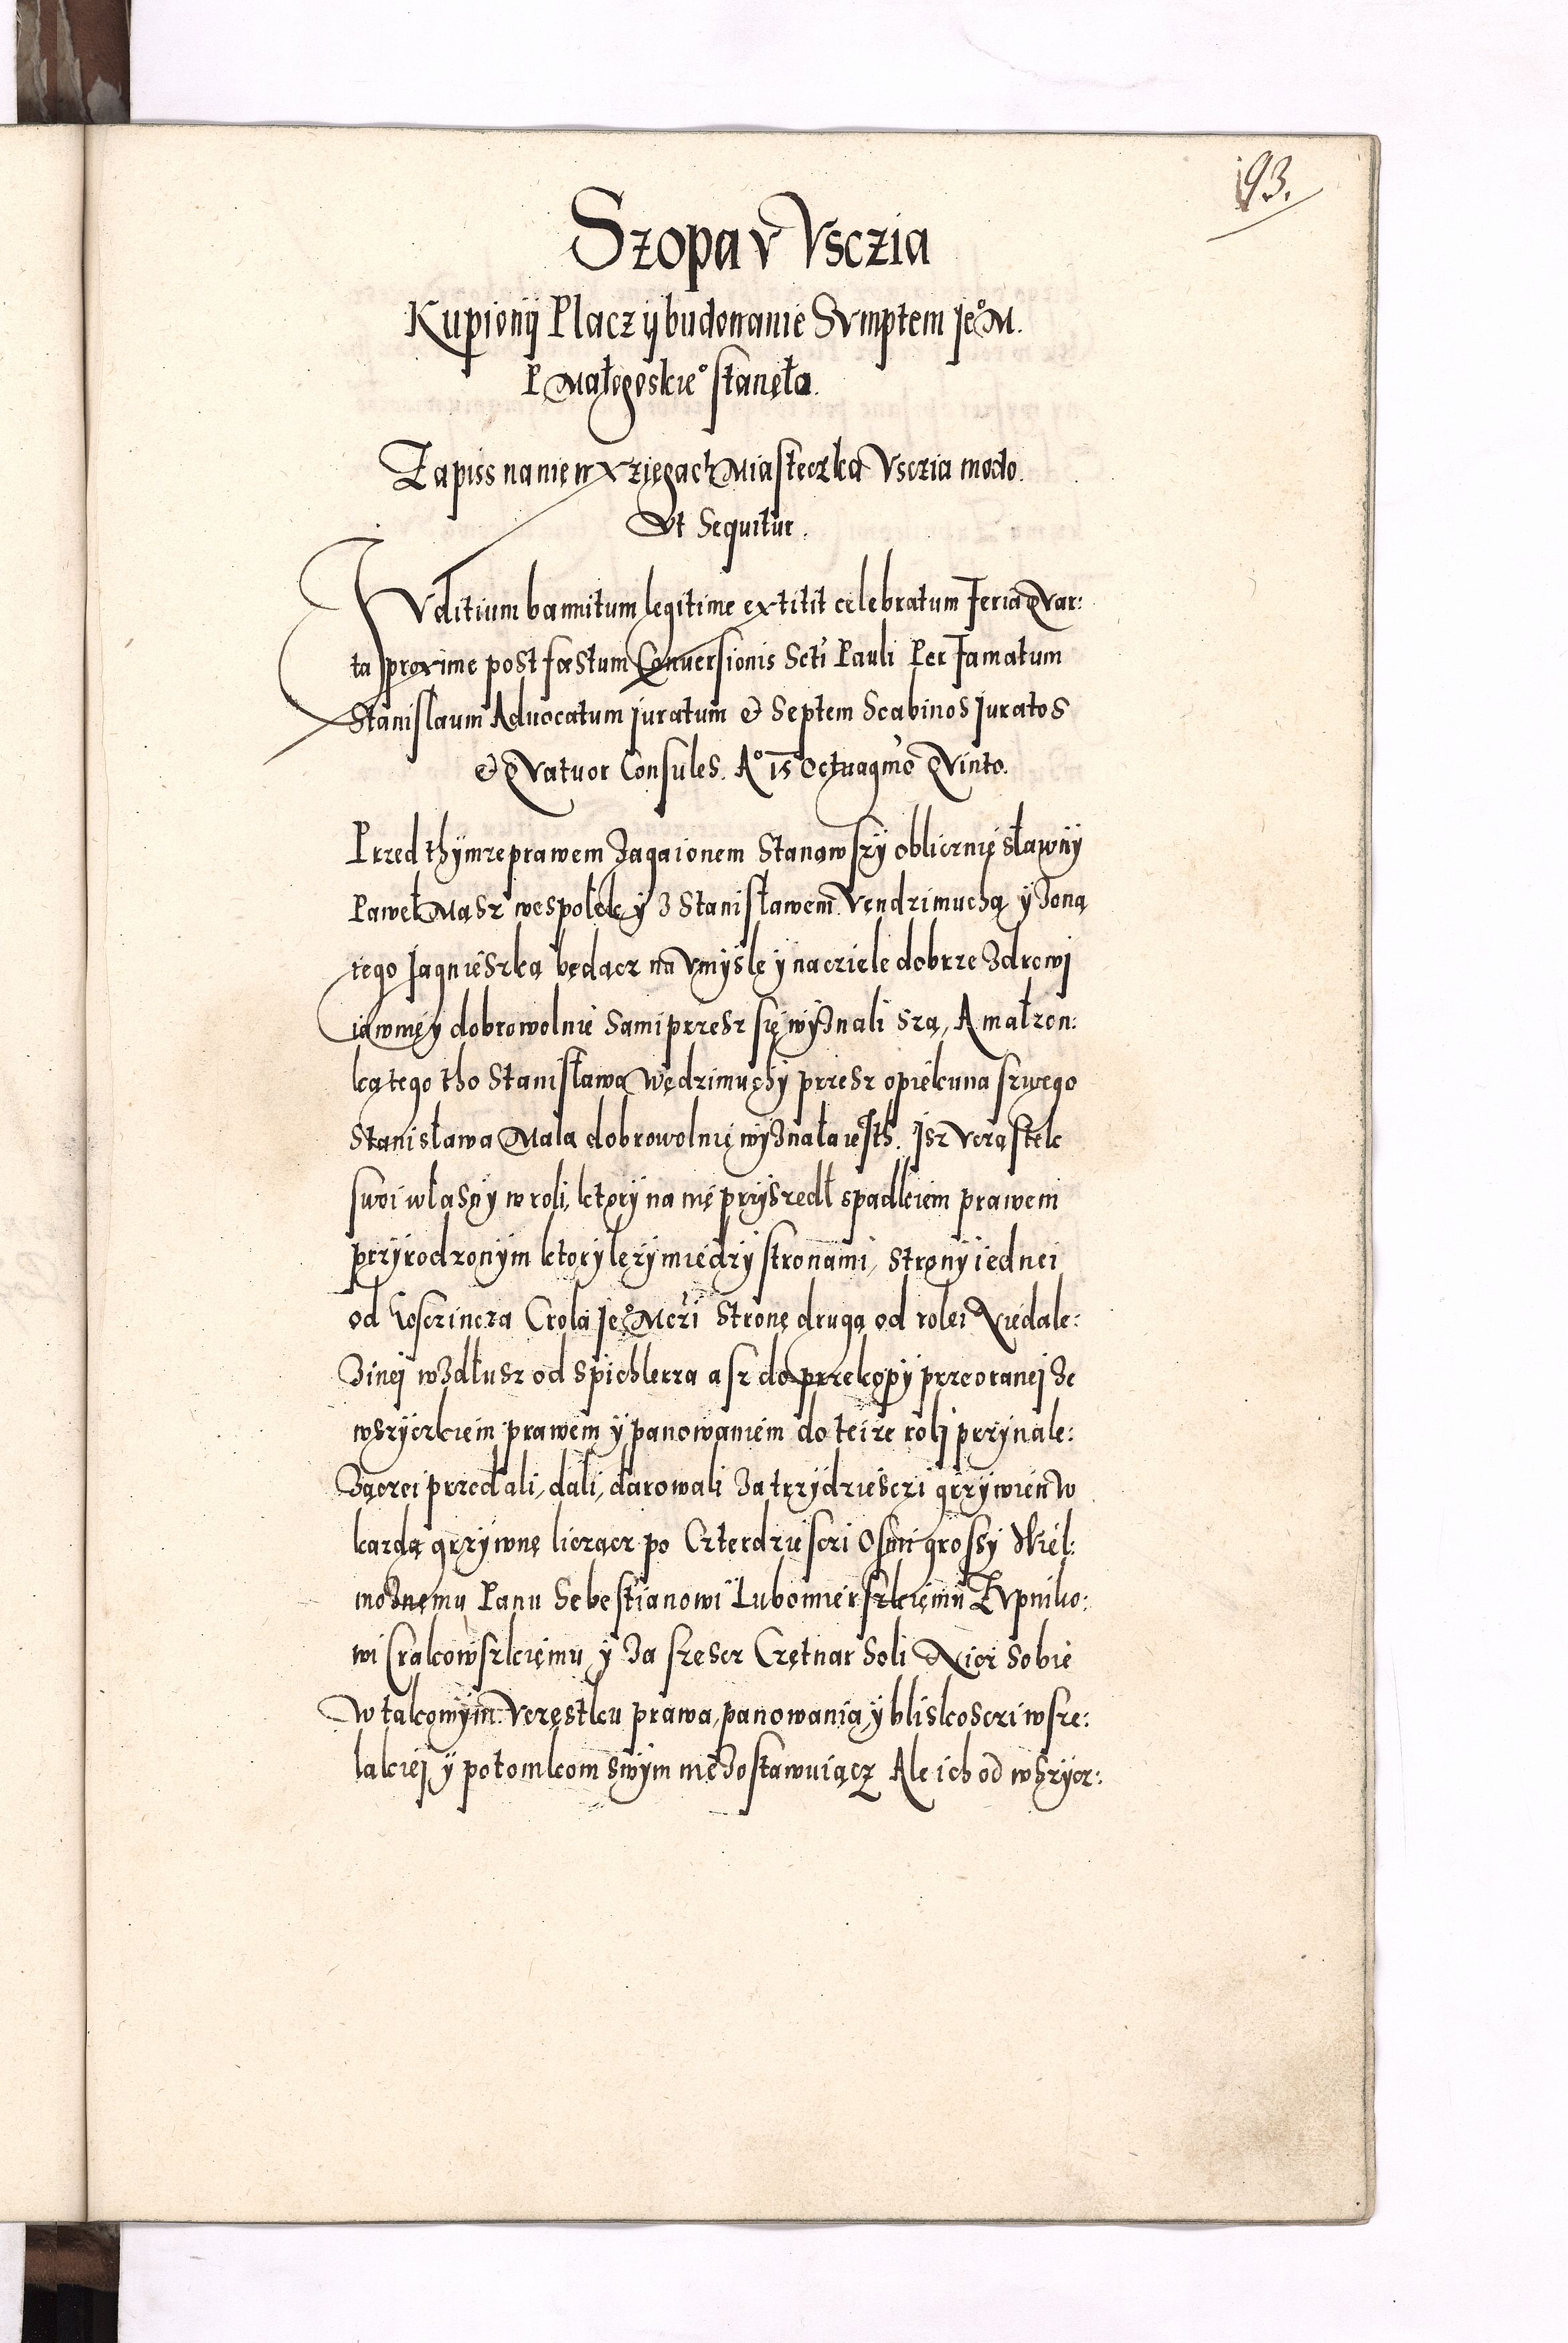 193.
Szopa v Vsczia
Kupiony Placz y budowanie Svmptem Jeº M.
P Małogoskieº stanęła.
Zapiss na nię w Xzięgach Miasteczka Vsczia modo.
Vt Sequitur.
Ivditium bannitum legitime extitit celebratum Feria Qvar:
ta proxime post fæstum Conuersionis Scti Pauli Per Famatum
Stanislaum Aduocatum juratum & Septem Scabinos Juratos
& Qvatuor Consules. Aº 15 Octuagmo Qvinto.
Przed thymze prawem Zagaionem Stanąwszy oblicznię sławny
Paweł Mąsz wespołek y z Stanisławem Vendzimuchą y Zoną
tego Jagnieszką będącz na Vmyslę y na cziele dobrze Zdrowj
iawnię y dobrowolnie Sami przesz się wyznali szą, A małzon:
ką tego tho Stanisława Wędzimuchy przesz opiekuna szwego
Stanisława Mala dobrowolnię wyznała iesth. Jsz Vcząstek
swoi własny w roli, ktory na nię przyszedł spadkiem prawem
przyrodzonym ktory lezy miedzy stronami, Strony iednei
od Goscincza Crola Jeº Mczi Stronę drugą od rolei Niedale:
Zinej wzdłusz od Spichlerza asz do przekopy przeoranej Ze
wszyczkiem prawem y panowaniem do teize rolj przynale:
Zączei przedali, dali, darowali Za trzydziesczi grzywien w
kazdą grzywnę licząącz po Czterdziesczi Osmi grossy Wiel:
moznemu Panu Sebestianowi Lubomierszkięmu Zvpniko:
wi Crakowszkięmu y Za szescz Czetnar Soli Nicz Sobie
W takowym Vczęstku prawa, panowania, y bliskosczi wsze:
lakiej y potomkom swym nię Zostawuiącz Ale ich od wszycz: